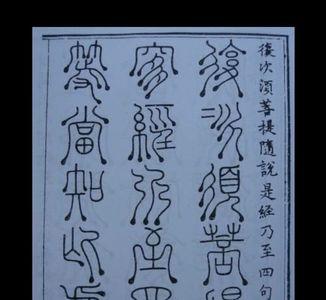 復次須菩提隨說是經乃至四句
復次須菩提
是經乃至四
等當知此處